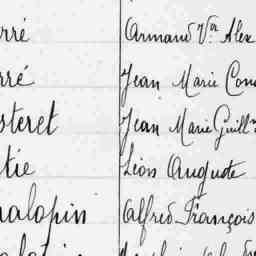 rré Armand V.or Alex
rré Jean Marie Con
steret Jean Marie Guill
tie Léon Auguste
alopin Alfred François